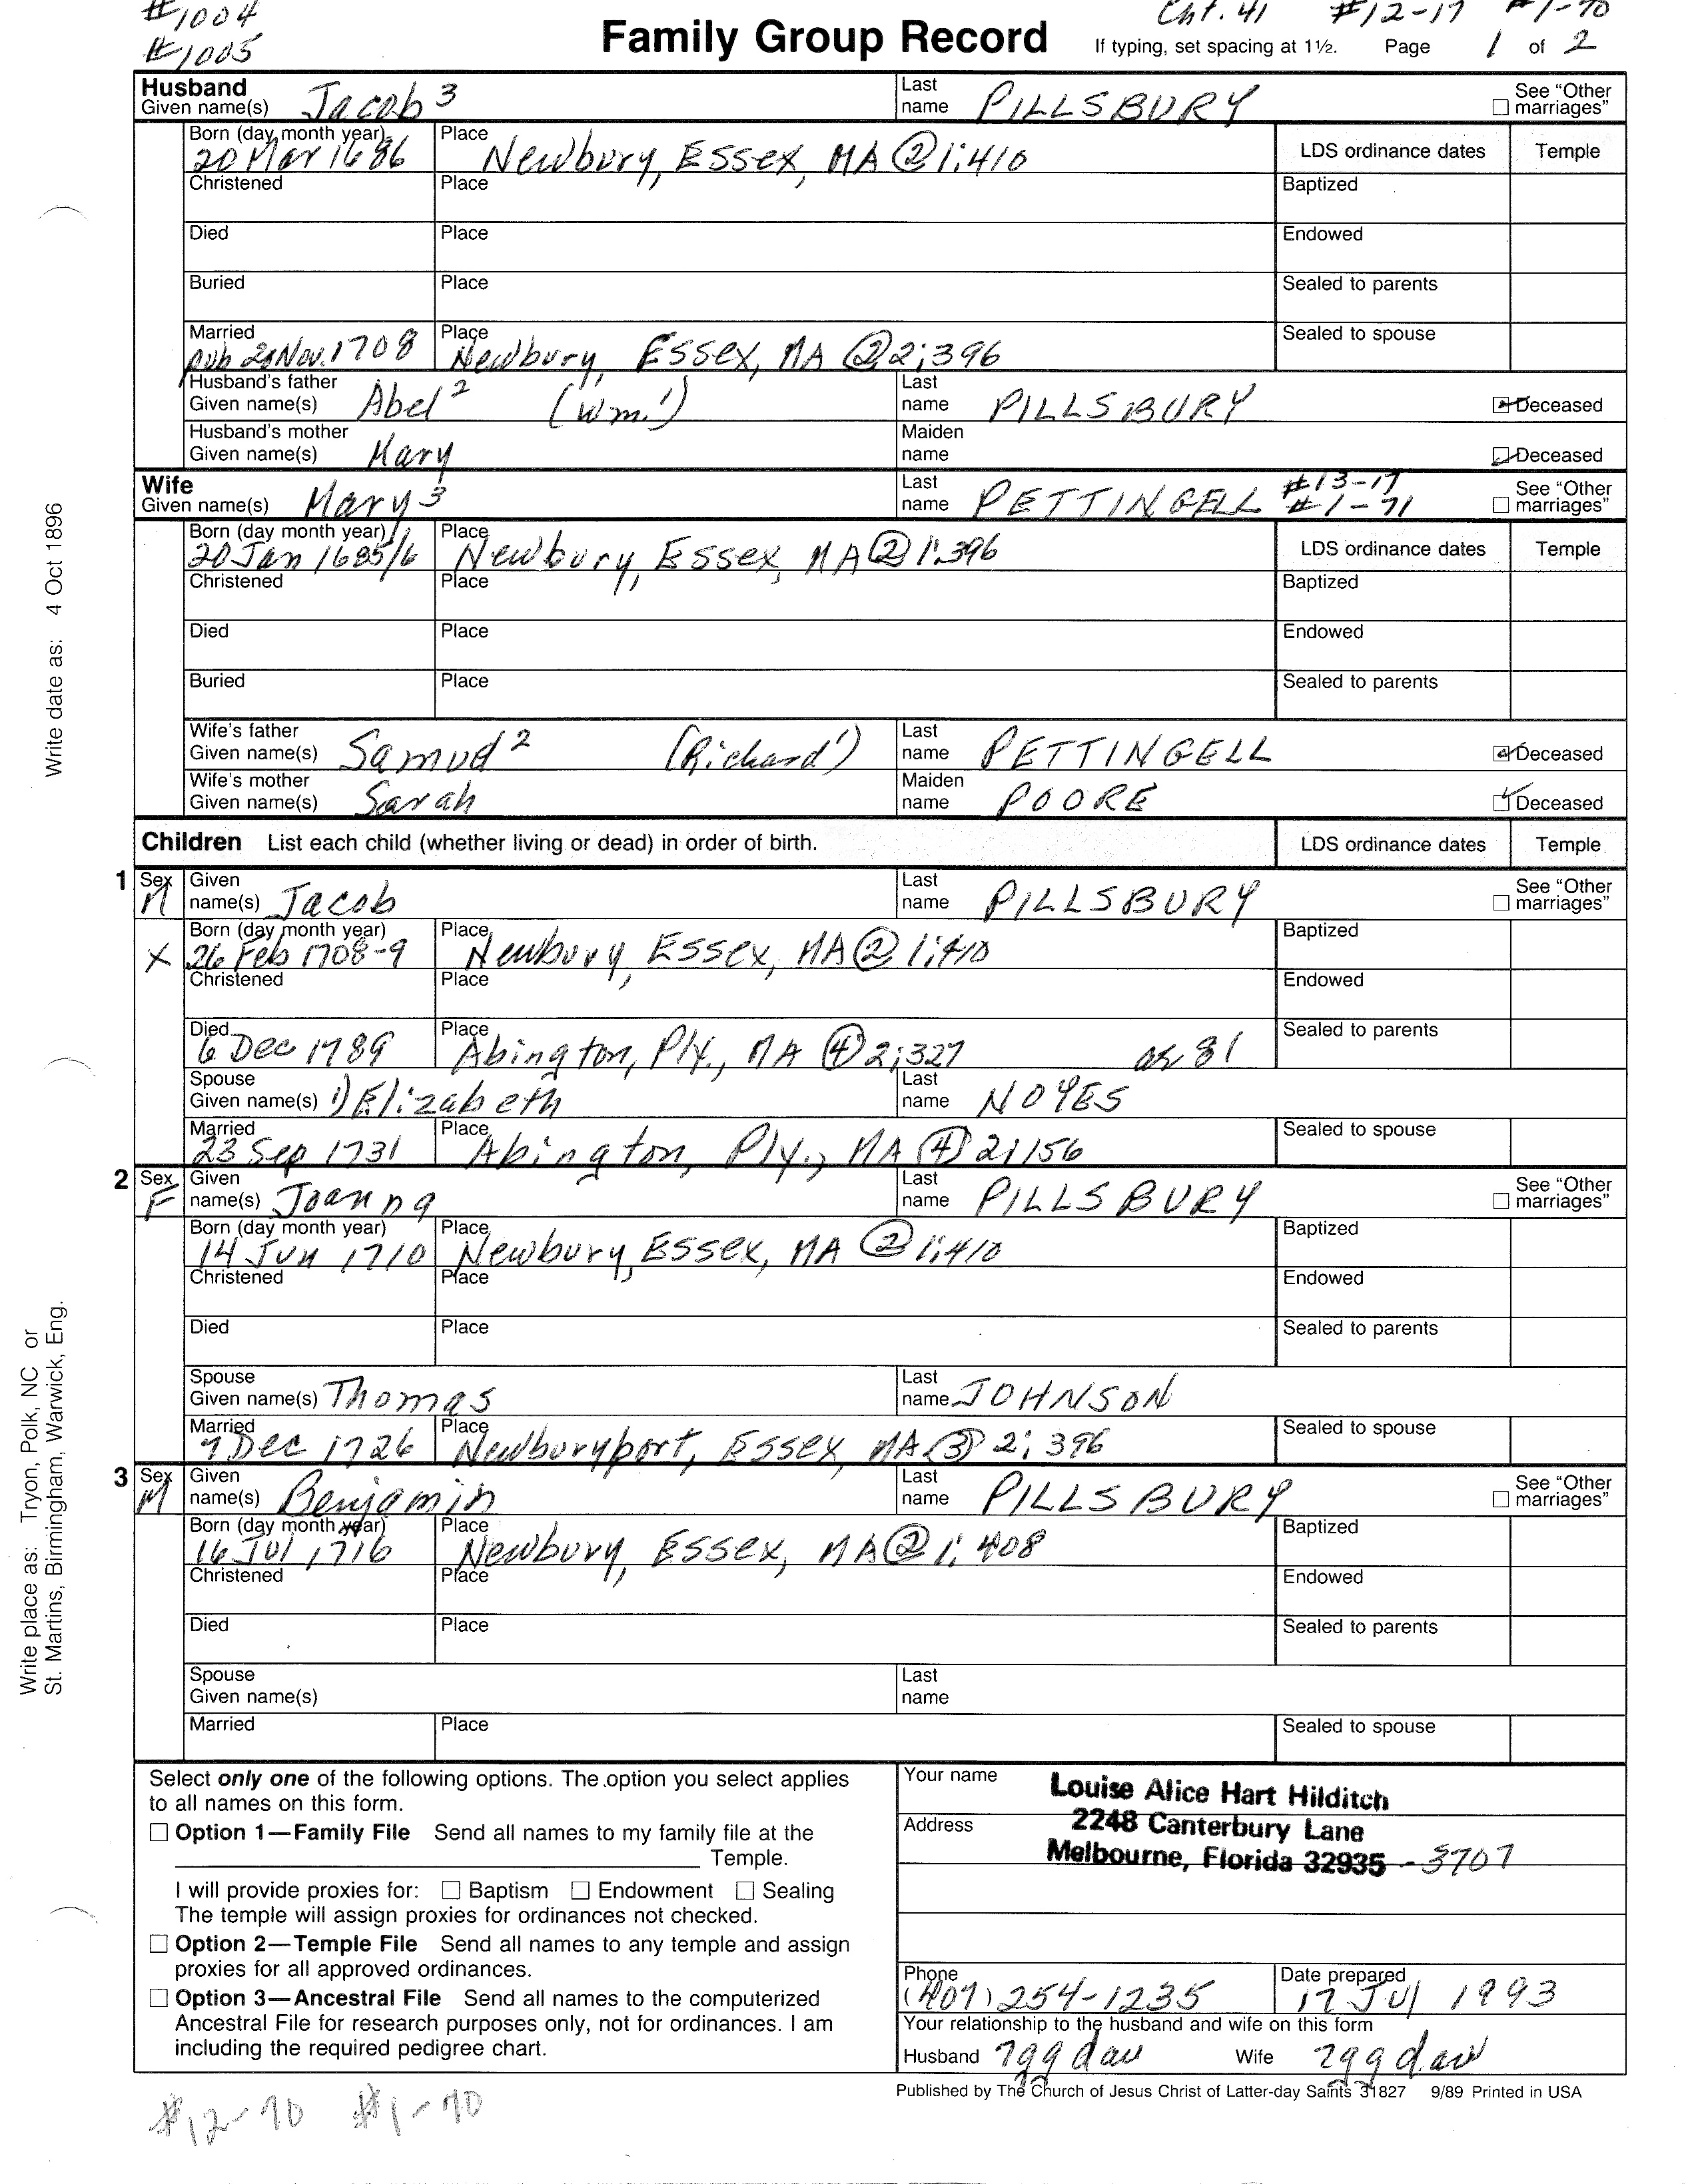 #1004 Cht. 41 #12-17 #1-70
#1005 Family Group Record If typing, set spacing at 1½. Page 1 of 2
Husband
Given name(s) Jacob 3 Last name PILLSBURY See "Other marriages"
Born (day month year) 20 Mar 1686 Place Newbury, Essex, MA ② 1:410 LDS ordinance dates Temple
Christened Place Baptized
Died Place Endowed
Buried Place Sealed to parents
Married pub 20 Nov. 1708 Place Newbury, Essex, MA ② 2:396 Sealed to spouse
Husband's father Given name(s) Abel 2 (Wm.1) Last name PILLSBURY Deceased
Husband's mother Given name(s) Mary Maiden name Deceased
Wife
Given name(s) Mary 3 Last name PETTINGELL #13-17 #1-71 See "Other marriages"
Born (day month year) 20 Jan 1685/6 Place Newbury, Essex, MA ② 1:396 LDS ordinance dates Temple
Christened Place Baptized
Died Place Endowed
Buried Place Sealed to parents
Wife's father Given name(s) Samuel 2 (Richard 1) Last name PETTINGELL Deceased
Wife's mother Given name(s) Sarah Maiden name POORE Deceased
Children List each child (whether living or dead) in order of birth. LDS ordinance dates Temple
1 Sex M Given name(s) Jacob Last name PILLSBURY See "Other marriages"
X Born (day month year) 26 Feb 1708-9 Place Newbury, Essex, MA ② 1:410 Baptized
Christened Place Endowed
Died 6 Dec 1789 Place Abington, Ply., MA ④ 2:327 81 Sealed to parents
Spouse Given name(s) 1) Elizabeth Last name NOYES
Married 23 Sep 1731 Place Abington, Ply., MA ④ 2:156 Sealed to spouse
2 Sex F Given name(s) Joanna Last name PILLSBURY See "Other marriages"
Born (day month year) 14 Jun 1710 Place Newbury, Essex, MA ② 1:410 Baptized
Christened Place Endowed
Died Place Sealed to parents
Spouse Given name(s) Thomas Last name JOHNSON
Married 7 Dec 1726 Place Newburyport, Essex MA ③ 2:396 Sealed to spouse
3 Sex M Given name(s) Benjamin Last name PILLSBURY See "Other marriages"
Born (day month year) 16 Jul 1716 Place Newbury, Essex, MA ② 1:408 Baptized
Christened Place Endowed
Died Place Sealed to parents
Spouse Given name(s) Last name
Married Place Sealed to spouse
Write date as: 4 Oct 1896
Write place as: Tryon, Polk, NC or
St. Martins, Birmingham, Warwick, Eng.
Select only one of the following options. The option you select applies
to all names on this form.
Option 1—Family File Send all names to my family file at the
Temple.
I will provide proxies for: Baptism Endowment Sealing
The temple will assign proxies for ordinances not checked.
Option 2—Temple File Send all names to any temple and assign
proxies for all approved ordinances.
Option 3—Ancestral File Send all names to the computerized
Ancestral File for research purposes only, not for ordinances. I am
including the required pedigree chart.
Your name Louise Alice Hart Hilditch
Address 2248 Canterbury Lane
Melbourne, Florida 32935 -3707
Phone (407) 254-1235 Date prepared 17 Jul 1993
Your relationship to the husband and wife on this form
Husband 7gg dau Wife 7gg dau
Published by The Church of Jesus Christ of Latter-day Saints 31827 9/89 Printed in USA
#12-70 #1-70